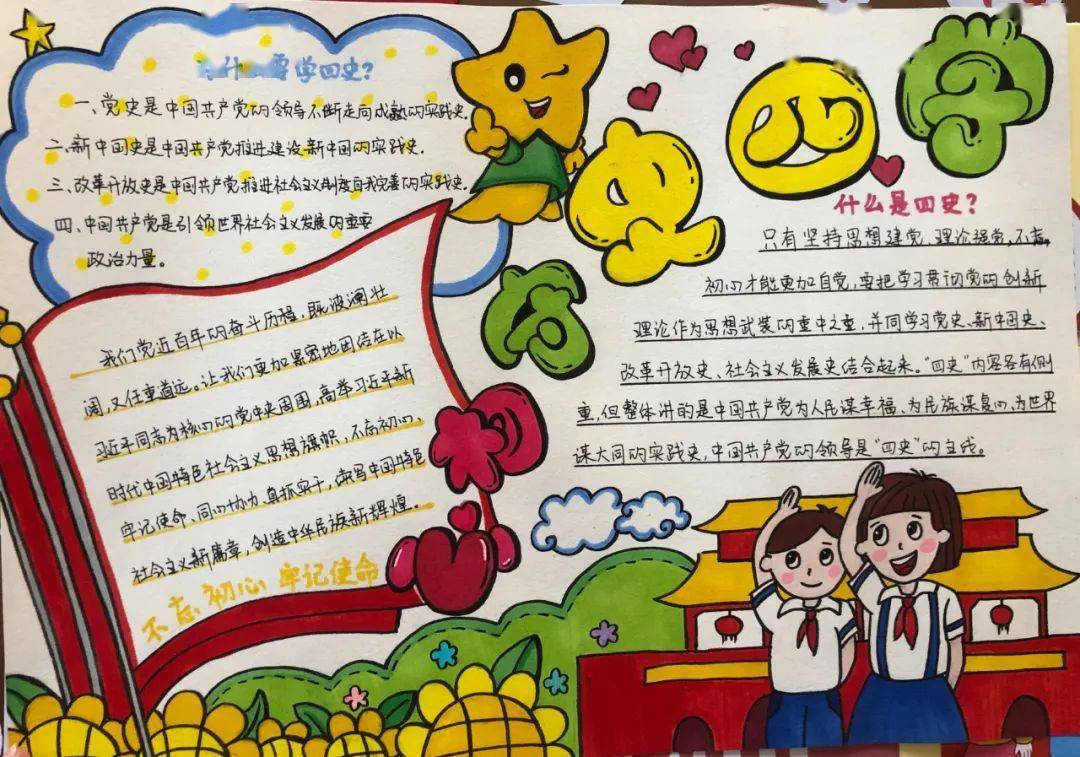 学四史
守初心
什么要学四史?
一、党史是中国共产党的领导不断走向成熟的实践史.
二、新中国史是中国共产党推进建设新中国的实践史.
三、改革开放史是中国共产党推进社会主义制度自我完善的实践史.
四、中国共产党是引领世界社会主义发展的重要
政治力量。
我们党近百年的奋斗历程,既波澜壮
阔,又任重道远。让我们更加紧密地团结在以
习近平同志为核心的党中央周围,高举习近平新
时代中国特色社会主义思想旗帜,不忘初心、
牢记使命、同心协力、真抓实干,续写中国特色
社会主义新篇章,创造中华民族新辉煌。
不忘初心 牢记使命
什么是四史?
只有坚持思想建党、理论强党,不忘
初心才能更加自觉,要把学习贯彻党的创新
理论作为思想武装的重中之重,并同学习党史、新中国史、
改革开放史、社会主义发展史结合起来。“四史”内容各有侧
重,但整体讲的是中国共产党为人民谋幸福、为民族谋复兴、为世界
谋大同的实践史,中国共产党的领导是“四史”的主线。